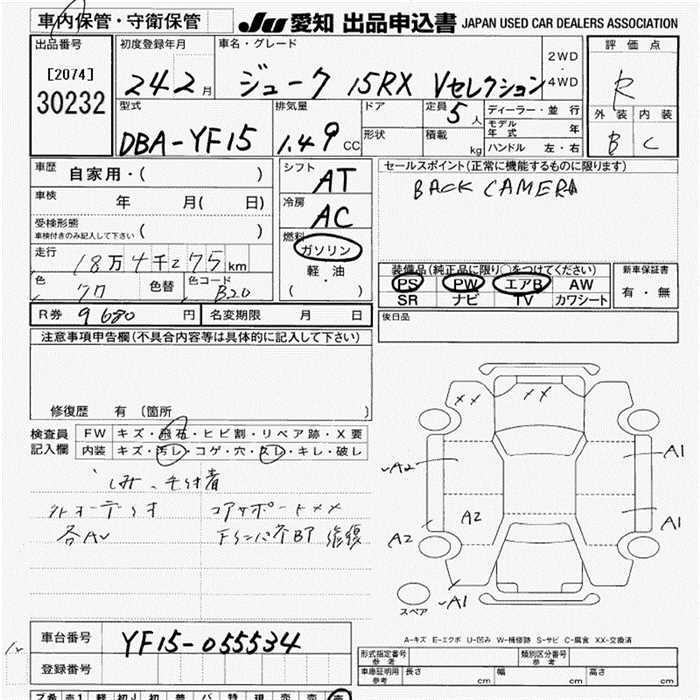 車内保管・守衛保管
JU 愛知 出品申込書 JAPAN USED CAR DEALERS ASSOCIATION
出品番号
[2074]
30232
初度登録年月
24 2 月
車名・グレード
ジューク 15RX Vセレクション
2WD
・
4WD
評価点
R
外装 内装
B C
型式
DBA-YF15
排気量
1.49 CC
ドア
形状
定員 5 人
積載 kg
ディーラー・並行
モデル年式 年
ハンドル 左・右
車歴
自家用・( )
車検 年 月( 日)
受検形態
車検付きのみ記入して下さい ( )
走行 18万4千275 km
色 クロ 色替 色コード B20
シフト AT
冷房 AC
燃料
ガソリン
軽・油
( ・ )
セールスポイント(正常に機能するものに限ります)
BACK CAMERA
装備品(純正品に限り○をつけてください)
PS PW エアB AW
SR ナビ TV カワシート
新車保証書
有・無
R券 9680 円 名変期限 月 日
後日品
注意事項申告欄(不具合内容等は具体的に記入して下さい)
修復歴 有(箇所 )
検査員記入欄
FW キズ・飛石・ヒビ割・リペア跡・X要
内装 キズ・汚レ・コゲ・穴・スレ・キレ・破レ
コアサポートXX
XX XX
A2 A1
A2 A1
A2
A1
スペア
A-キズ E-エクボ U-凹み W-補修跡 S-サビ C-腐食 XX-交換済
車台番号 YF15-055534
登録番号
形式指定番号 参考
類別区分番号 参考
車庫証明用 参考 長さ cm 幅 cm 高さ cm